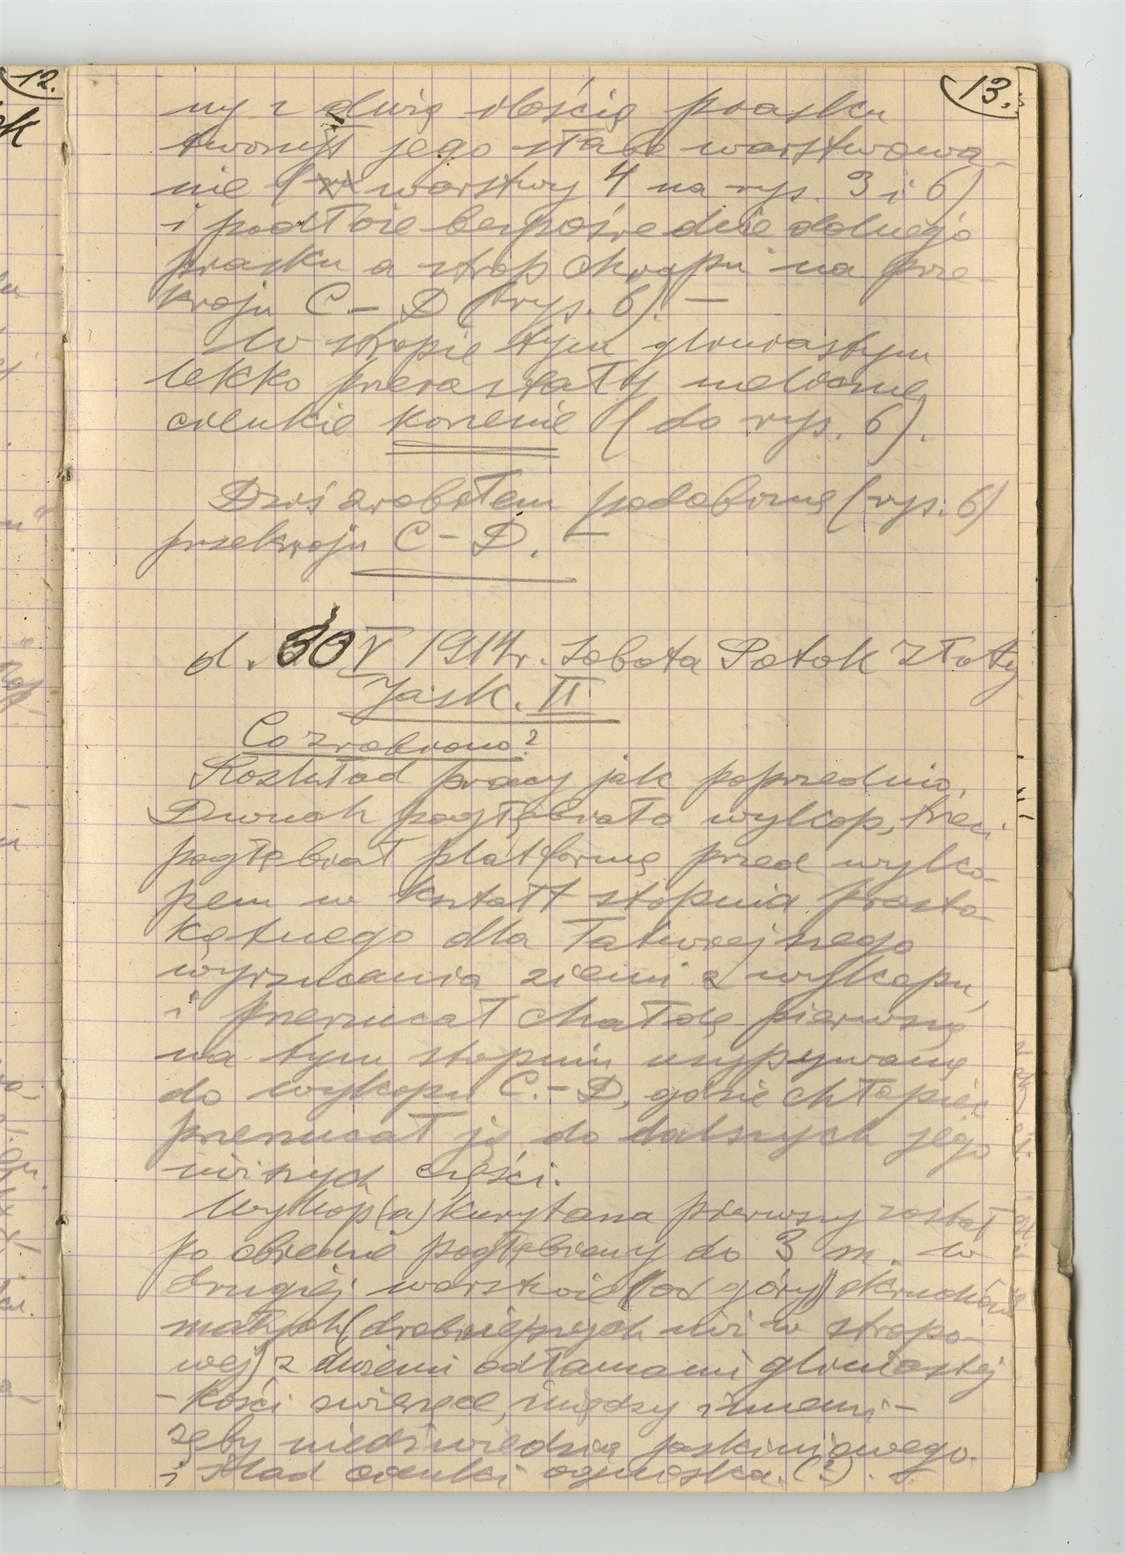 12.
13.
ny z dużą ilością piasku
tworzył jego stałe warstwowa-
nie ( warstwy 4 na rys. 3 i 6)
i podłoże bezpośrednie dolnego
piasku a strop chrapu na prze-
kroju C – D (rys. 6). —
W stropie tym gliniastym
lekko przerastały nieliczne
cienkie korzenie (do rys. 6).
Dziś zrobiłem podobiznę (rys. 6)
przekroju C – D. —
d. 30 V 1914 r. Sobota Potok Złoty
Jask. II
Co zrobiono?
Rozkład pracy jak poprzednio.
Dwuch pogłębiało wykop, trzeci
pogłębiał platformę przed wyko-
pem w kształt stopnia prosto-
kątnego dla łatwiejszego
wyrzucania ziemi z wykopu,
i przerzucał chałdę pierwszą
na tym stopniu usypywaną
do wykopu C. – D, gdzie chłopiec
przerzucał ją do dalszych jego
niższych części.
Wykop (a) kurytarza pierwszy został
po obiedzie pogłębiony do 3 m. w
drugiej warstwie (od góry) okruchów
małych (drobniejszych niż w stropo-
wej) z dużemi odłamami gliniastej
– kości zwierzęce, między innemi –
zęby niedźwiedzia jaskiniowego.
i ślad cienki ogniska. (?). –